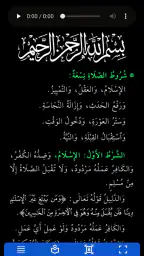 0:00 / 0:00
بِسْمِ اللَّهِ الرَّحْمَنِ الرَّحِيمِ
شُرُوطُ الصَّلَاةِ تِسْعَةٌ:
الإِسْلَامُ، وَالعَقْلُ، وَالتَّمْيِيزُ،
وَرَفْعُ الحَدَثِ، وَإِزَالَةُ النَّجَاسَةِ،
وَسَتْرُ العَوْرَةِ، وَدُخُولُ الوَقْتِ،
وَاسْتِقْبَالُ القِبْلَةِ، وَالنِّيَّةُ.
الشَّرْطُ الأَوَّلُ: الإِسْلَامُ، وَضِدُّهُ الكُفْرُ،
وَالكَافِرُ عَمَلُهُ مَرْدُودٌ، وَلَا تُقْبَلُ الصَّلَاةُ إِلَّا
مِنْ مُسْلِمٍ.
وَالدَّلِيلُ قَوْلُهُ تَعَالَى: ﴿وَمَن يَبْتَغِ غَيْرَ الْإِسْلَامِ
دِينًا فَلَن يُقْبَلَ مِنْهُ وَهُوَ فِي الْآخِرَةِ مِنَ الْخَاسِرِينَ﴾.
وَالكَافِرُ عَمَلُهُ مَرْدُودٌ وَلَوْ عَمِلَ أَيَّ عَمَلٍ.